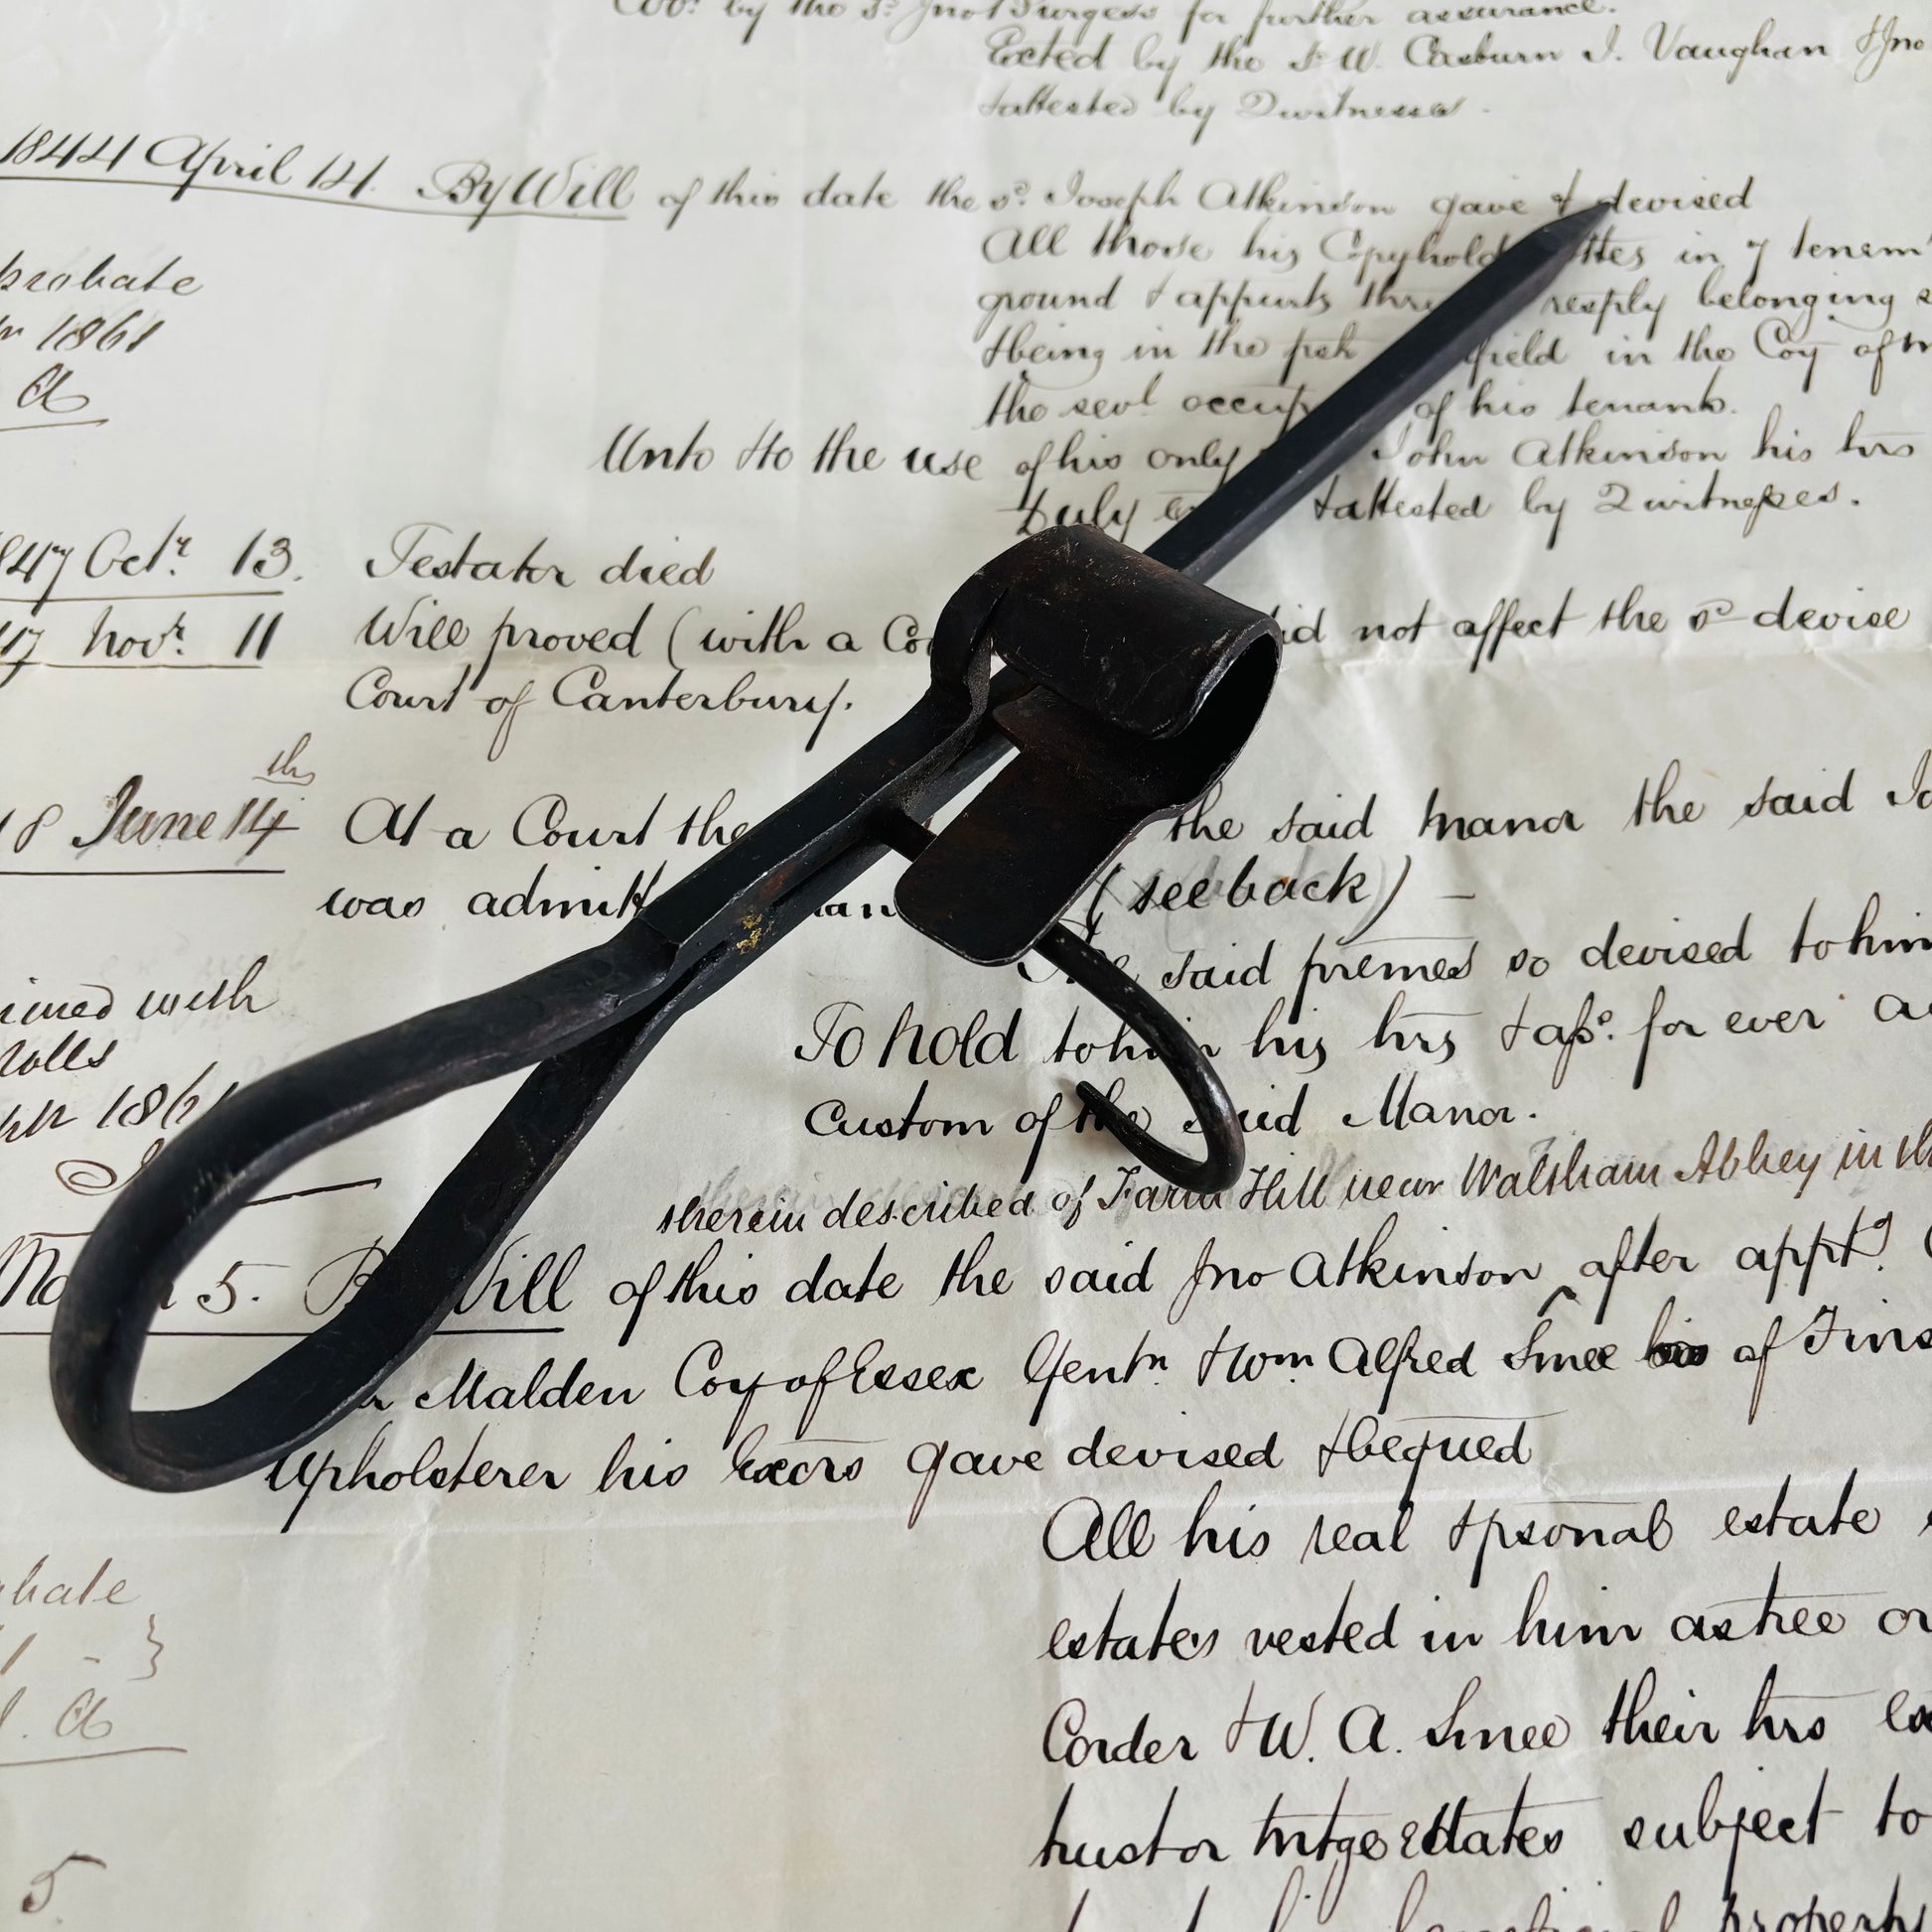 by the sd. Jno Burgess for further assurance.
Exted by the sd W. Casburn I. Vaughan & Jno
& attested by 2 witnesses.
1844 April 14. By Will of this date the sd. Joseph Atkinson gave & devised
All those his Copyhold in 7 tenemts
probate
ground & appurts resply belonging
1861
& being in the psh field in the Coy of
a
the sevl occup of his tenants.
Unto & to the use of his only John Atkinson his hrs
Duly & attested by 2 witnesses.
1847 Octr. 13. Testator died
Novr. 11 Will proved (with a not affect the sd devise
Court of Canterbury.
June 14th At a Court the said Manor the said
was (see back)
said premes so devised to him
with
Rolls
To hold to him his hrs & ass. for ever
1861
Custom of the said Manor.
therein described of Farm Hill near Waltham Abbey in
5. By Will of this date the said Jno Atkinson after apptg.
Malden Coy of Essex Gentn & Wm Alfred Smee of
Upholsterer his Excors gave devised & bequed
All his real & psonal estate
estates vested in him as tree or
Corder & W. A. Smee their hrs
trust or mtge estates subject to
5
property